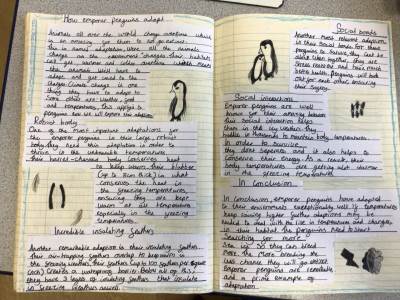 How emperor penguins adapt
Animals all over the world change overtime which
is an amazing for them to not go extinct.
This is named adaptation were all the animals
change as the enviroment changes. Their habitats
can get warmer and colder overtime which means
the animals will have to
adapt and get used to the
changes. Climate change is one
thing they have to adapt to
some others are: weather, food
and temperatures, this applys to
penguins now we will explore their adaptions.
Robust body
One of the most important adaptations for
the emperor penguins is their large, robust
body. They need this adaptation in order to
thrive in the unbearable temperatures
their barrel-chested body conserves heat
to keep warm, their blubber
(up to 3cm thick) is what
conserves the heat in
the freezing temperatures
ensuring they are kept
warm at all temperatures
especially in the freezing
temperatures.
Incredible insulating feathers
Another remarkable adaption is their insulating feathers
their air-trapping feathers overlap to keep warm in
the freezing weather, their feathers (up to 100 feathers per square
inch) creates a waterproof barrier. Below all of this,
they have 2 layers of insulating feathers that insulate
in freezing
Social bonds
Another most relevant adaption
is their social bonds for these
penguins to survive, they cant be
alone when together, they are
stress reducing and have much
better health. Penguins will look
out for each other ensuring
their safety.
Social interactions
Emperor penguins are well
known for their amazing behavior
their social interaction helps
them in the icy weather, they
huddle in thousands to maintain body temperatures.
In order to survive
they dont seperate and it also helps to
conserve their energy. As a result, their
body temperatures are getting alot warmer
in the freezing temperatures
In conclusion
In conclusion, emperor penguins have adapted
to their environments exceptionally well. If temperatures
keep coming higher further adaptions may be
needed to deal with the rise in temperature and changes
in their habitat the penguins need to start
searching for more
sea ice so they can breed
more. The more breeding the
less chance they will go extinct.
Emperor penguins are remarkable
and a prime example of
adaptation.